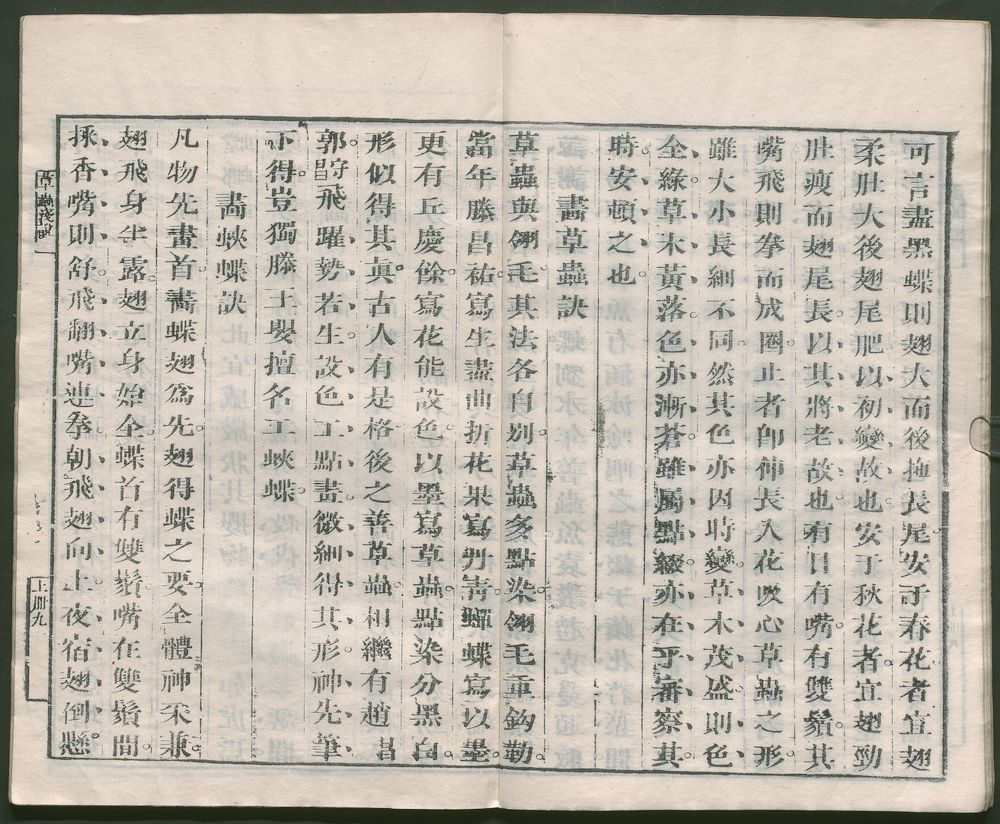 可言盡黑蝶則翅大而後拖長尾安于春花者宜翅
柔肚大後翅尾肥以初變故也安于秋花者宜翅勁
肚瘦而翅尾長以其將老故也有目有嘴有雙鬚其
嘴飛則拳而成圈止者卽伸長入花吸心草蟲之形
雖大小長細不同然其色亦因時變草木茂盛則色
全綠草木黃落色亦漸蒼雖屬點綴亦在乎審察其
時安頓之也
畵草蟲訣
草蟲與翎毛其法各自别草蟲多點染翎毛重鈎勒
當年滕昌祐寫生盡曲折花果寫丹靑蟬蝶寫以墨
更有丘慶餘寫花能設色以墨寫草蟲點染分黑白
形似得其眞古人有是格後之善草蟲相繼有趙昌
郭詡飛躍勢若生設色工點畫微細得其形神先筆
下得豈獨滕王嬰擅名工蛺蝶
畵蛺蝶訣
凡物先畫首畵蝶翅爲先翅得蝶之要全體神采兼
翅飛身半露翅立身始全蝶首有雙鬚嘴在雙鬚間
採香嘴則舒飛翻嘴連拳朝飛翅向上夜宿翅倒懸
草蟲淺說
上册九